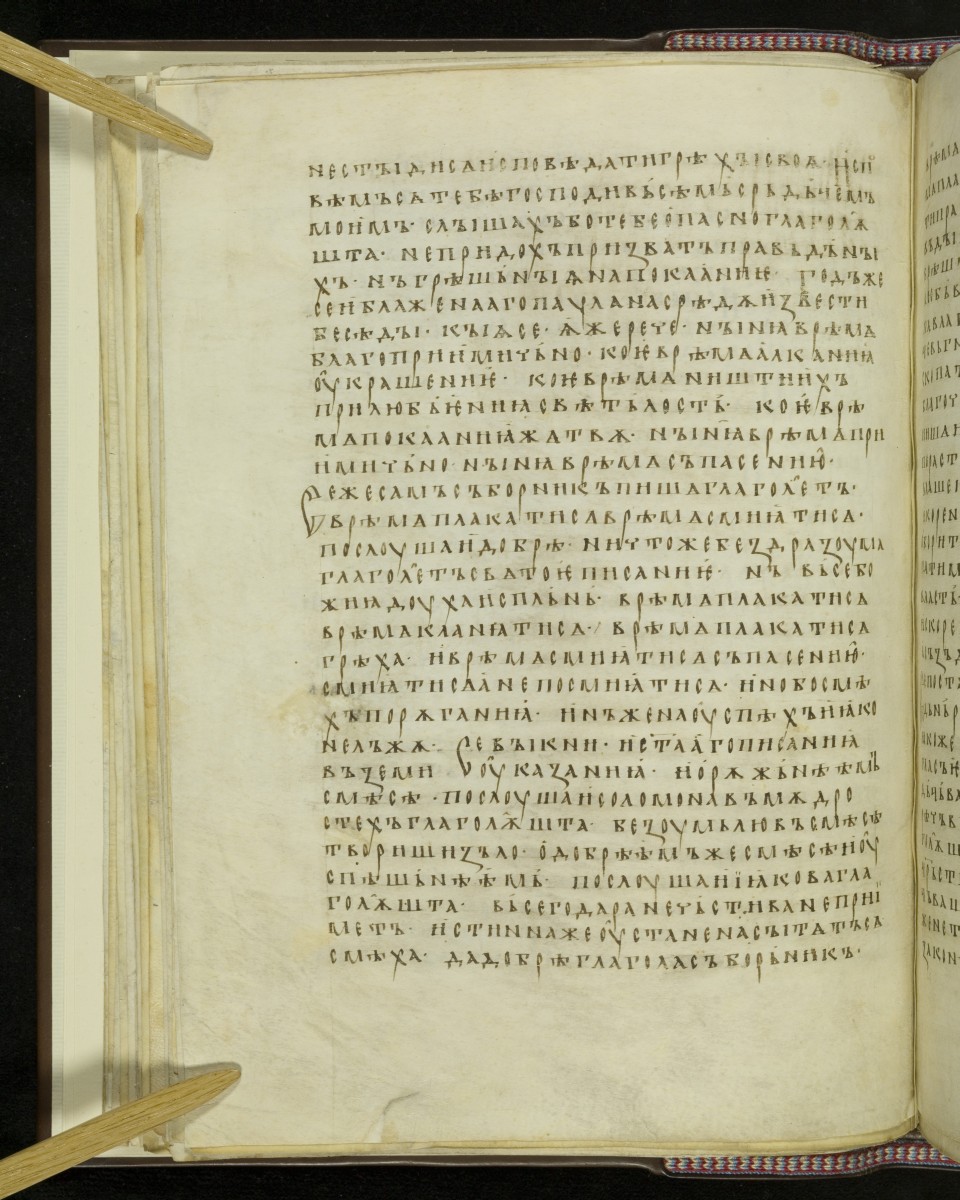 не стъıди сѧ исповѣдати грѣхъı своѧ· испо
вѣмъ сѧ тебѣ господи вьсѣмь срьдьчемъ
моимъ· слъıшахъ бо тебе опасно глаголѭ
шта· не придохъ призватъ правьдьнъı
хъ· нъ грѣшьнъıѩ на покаание· годъ же
сеи блаженааго паѵла на срѣдѫ извести
бесѣдъı· къıѩ се· ѩже рече· нъıнꙗ врѣмѧ
благоприимичьно· кое врѣмѧ алканиꙗ
оукрашение· кое врѣмѧ ништиихъ
прилюбьениꙗ свѣтьлость· кое врѣ
мѧ покааниꙗ жатвѫ· нъıнꙗ врѣмѧ при
имичьно нъıнꙗ врѣмѧ съпасению·
Идеже самъ съборникъ пишѧ глаголетъ·
врѣмѧ плакати сѧ врѣмѧ смиꙗти сѧ·
послоушаи добрѣ· ничтоже без д разоума
глаголетъ свѧтое писание· нъ вьсе бо
жиꙗ доуха испльнь· врѣмѧ плакати сѧ
врѣмѧ кланꙗти сѧ· врѣмѧ плакати сѧ
грѣха· и врѣмѧ смиꙗти сѧ съпасению·
смиꙗти сѧ а не посмиꙗти сѧ· ино бо смѣ
хъ порѫганиꙗ· инъ же на оуспѣхъ иꙗко
не лъжѫ· Севъıкни· и стааго писаниꙗ
възьми оуказаниꙗ· и орѫжьнѣемь
смѣсѣ· послоушаи соломона въ мѫдро
стехъ глаголѭшта· безоумьлю въ смѣсѣ
твориши зъло· о добрѣемъ же смѣсѣ и оу
спѣшьнѣемь· послоушаи иꙗкова гла
голѭшта· вьсего дара нечьстива не прии
метъ· истиннаже оуста ненасъıтѧтъ сѧ
смѣха· да добрѣ глагола съборьникъ·